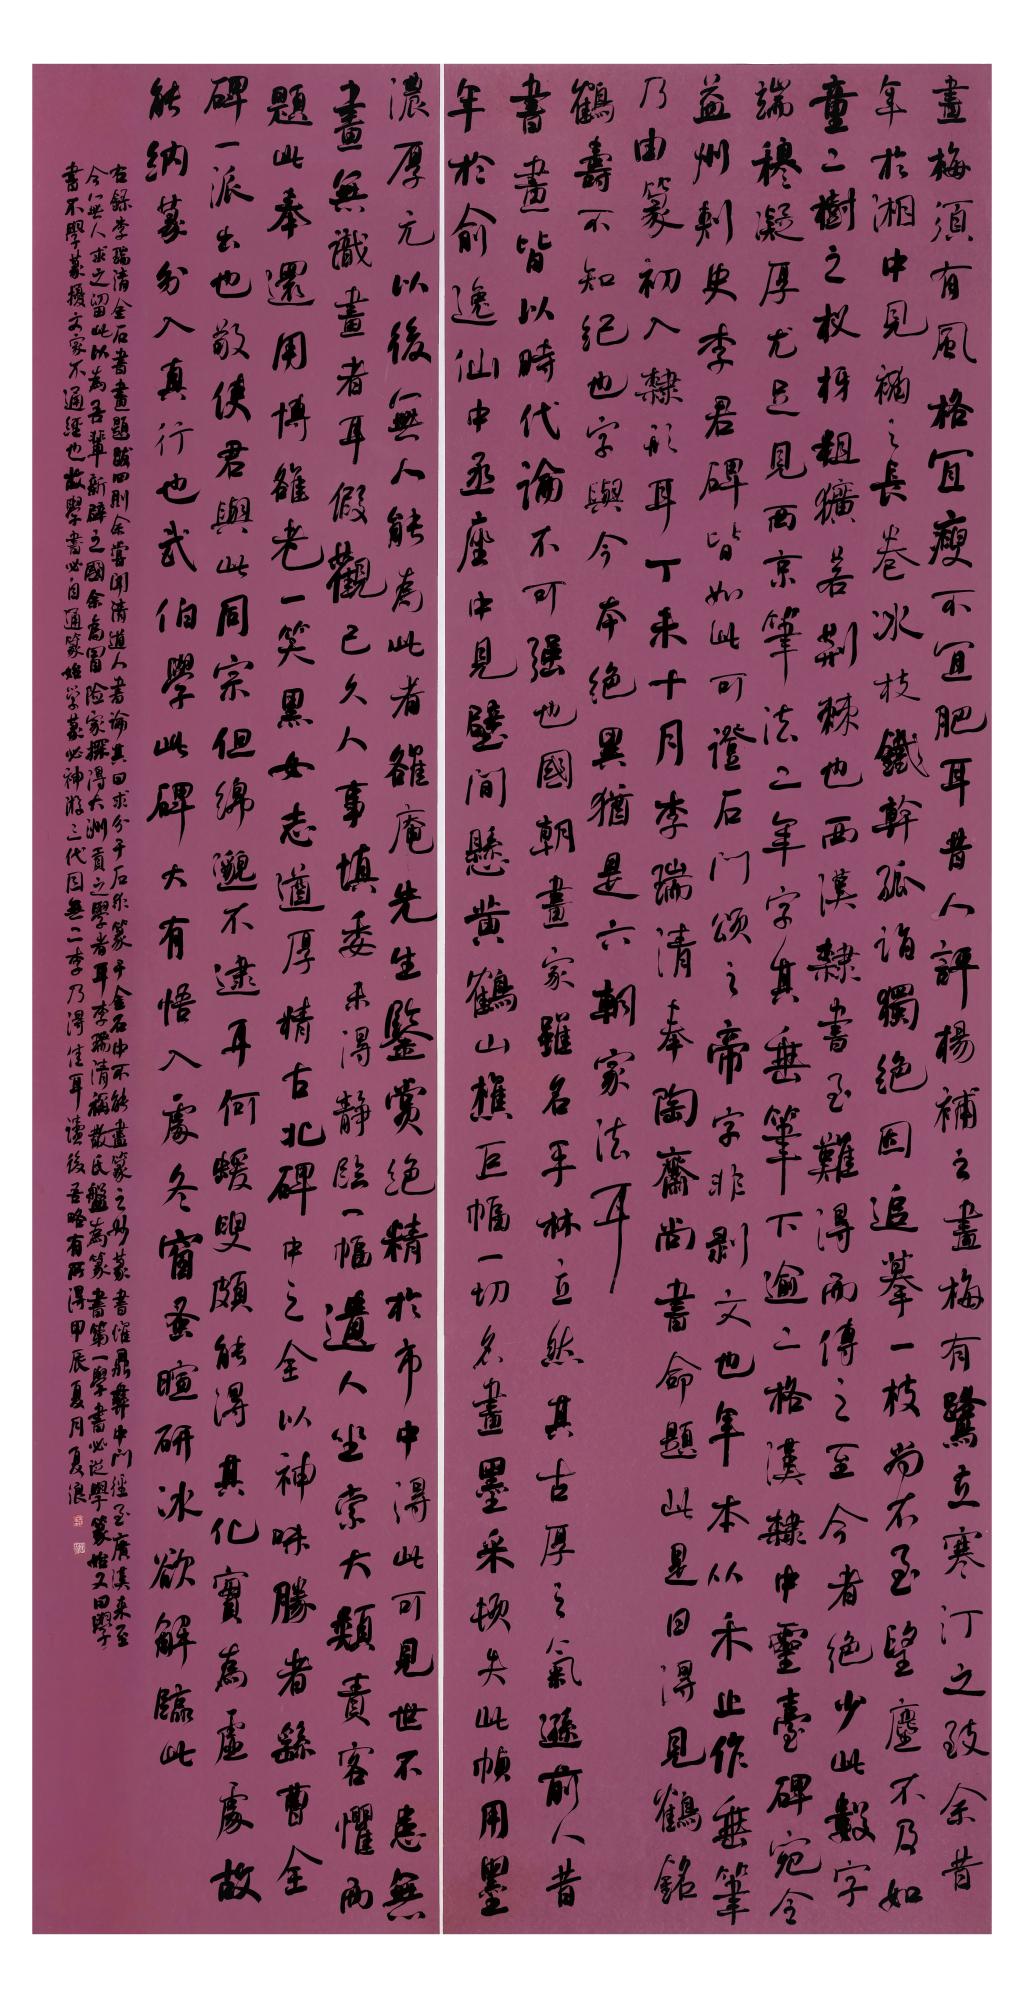 畫梅須有風格宜瘦不宜肥耳昔人評楊補之畫梅有鷺立寒汀之致余昔
年於湘中見補之長卷冰枝鐵幹孤詣獨絕因追摹一枝尚不至望塵不及如
童二樹之杈枒粗獷若荆棘也西漢隸書至難得而傳之至今者絕少此數字
端穆凝厚尤足見西京筆法二年字其垂筆下逾二格漢隸中靈臺碑宛令
益州刺史李君碑皆如此可證石門頌之帝字非剝文也年本从禾止作垂筆
乃由篆初入隸形耳丁未十月李瑞清奉陶齋尚書命題此是日得見鶴銘
鶴壽不知紀也字與今本絕異猶是六朝家法耳
書畫皆以時代論不可强也國朝畫家雖名手林立然其古厚之氣遜前人昔
年於俞逸仙中丞座中見壁間懸黄鶴山樵巨幅一切名畫墨采頓失此幀用墨
濃厚元以後無人能為此者雒庵先生鑒賞絕精於市中得此可見世不患無
畫無識畫者耳假觀已久人事填委未得静臨一幅道人坐索大類責客懼而
題此奉還用博雒老一笑黑女志遒厚精古北碑中之全以神味勝者繇曹全
碑一派出也敬使君與此同宗但綿邈不逮耳何蝯叟頗能得其化實為虛處故
能納篆分入真行也武伯學此碑大有悟入處冬窗蚤暄研冰欲解臨此
右錄李瑞清金石書畫題跋四則余嘗聞清道人書論其曰求分于石求篆于金石中不能盡篆之妙篆書惟鼎彝中門徑至廣漢來至
今無人求之留此以為吾輩新辟之國余為冒险家探得大洲貢之學者耳李瑞清稱散氏盤為篆書第一學書必從學篆始又曰學
書不學篆擾文家不通經也故學書必自通篆始学篆必神游三代目無二李乃得佳耳讀後吾略有所得甲辰夏月夏浪